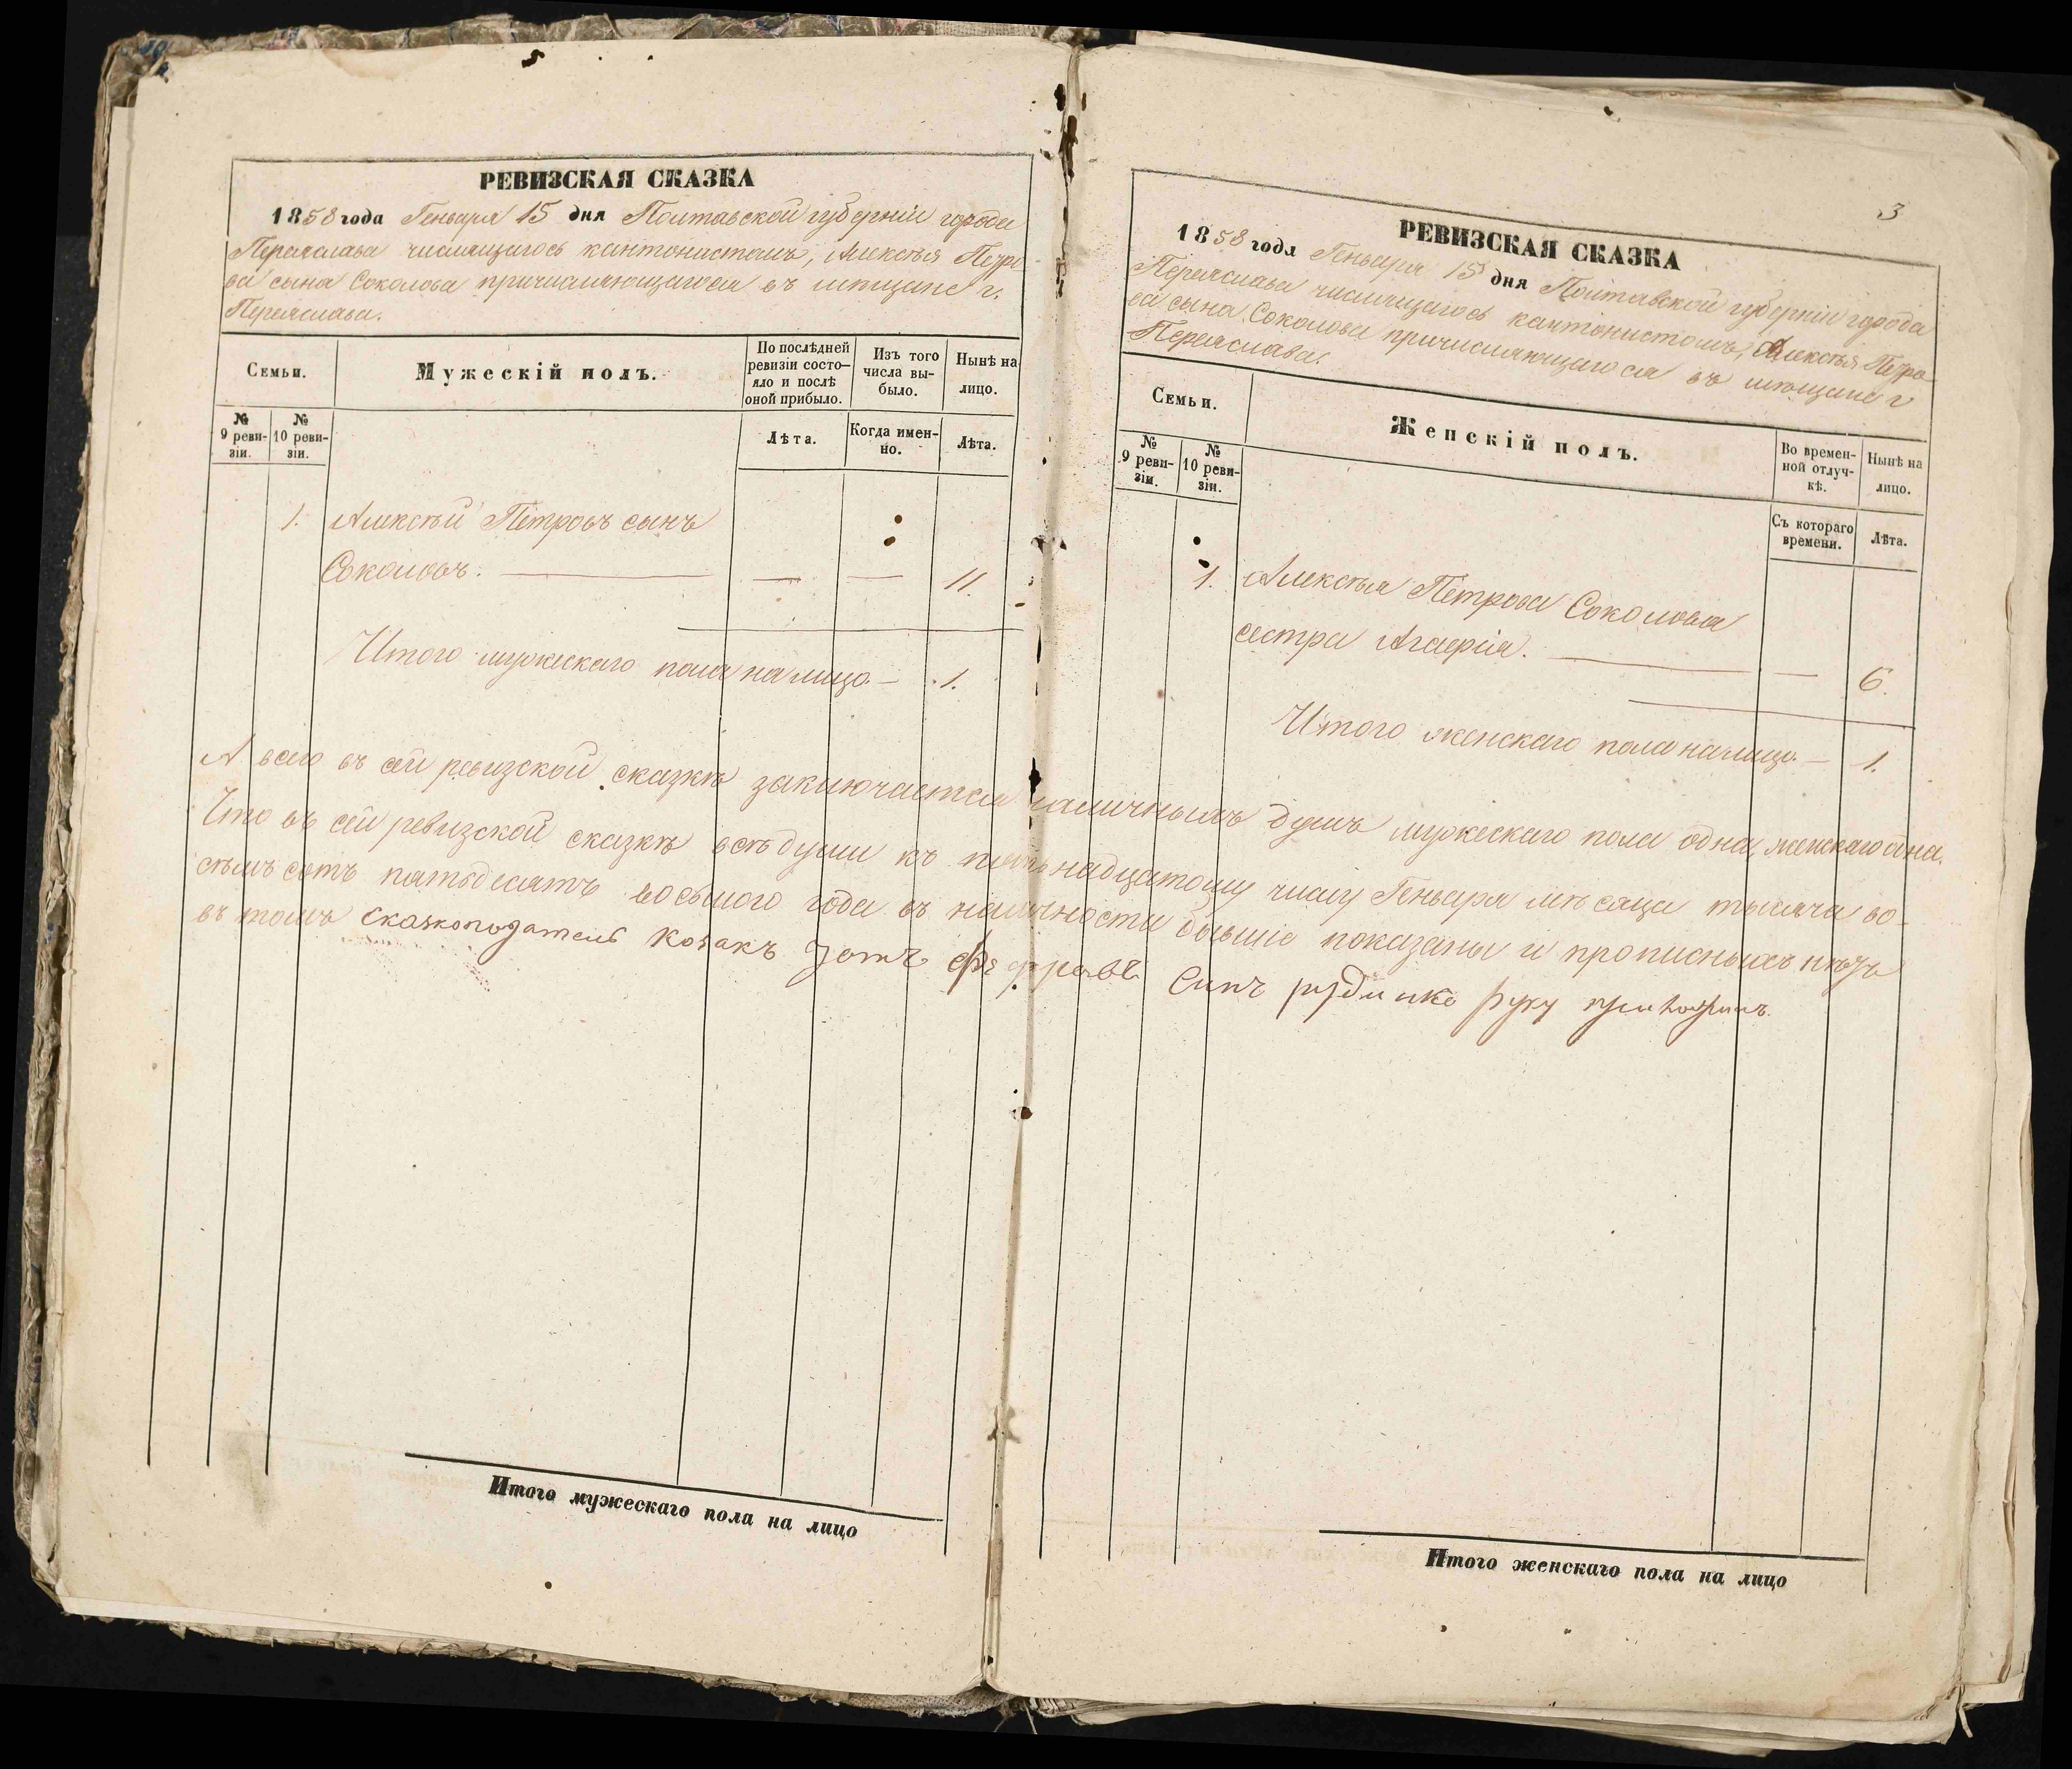 РЕВИЗСКАЯ СКАЗКА
1858 года Генваря 15 дня Полтавской губерніи города
Переяслава числящагось кантонистомъ, Алексѣя Петро
ва сына Соколова причисляющагося въ мѣщане г.
Переяслава.
Семьи.
Мужескій полъ.
По послѣдней
ревизіи состо—
яло и послѣ
оной прибыло.
Изъ того
числа вы-
было.
Нынѣ на
лицо.
№
9 реви-
зіи.
№
10 реви-
зіи.
Лѣта.
Когда имен-
но.
Лѣта.
1. Алексѣй Петровъ сынъ
Соколовъ. — — — 11.
Итого мужескаго пола на лицо. — 1.
3
РЕВИЗСКАЯ СКАЗКА
1858 года Генваря 15 дня Полтавской губерніи города
Переяслава числящагось кантонистомъ, Алексѣя Петро
ва сына Соколова причисляющагося въ мѣщане г
Переяслава.
Семьи.
Женскій полъ.
Во времен-
ной отлуч-
кѣ.
Нынѣ на
лицо.
№
9 реви-
зіи.
№
10 реви-
зіи.
Съ котораго
времени.
Лѣта.
1. Алексѣя Петрова Соколова
сестра — — 6.
Итого женскаго пола на лицо. — 1.
А всего въ сей ревизской сказкѣ заключается наличныхъ душъ мужескаго пола одна, женскаго одна.
Что въ сей ревизской сказкѣ всѣ души къ пятьнадцатому числу Генваря мѣсяца тысяча во-
сѣмъ сотъ пятьдесятъ восьмого года въ наличности бывшіе показаны и прописныхъ нѣтъ
въ томъ сказкоподатель козакъ сынъ руку
Итого мужескаго пола на лицо
Итого женскаго пола на лицо